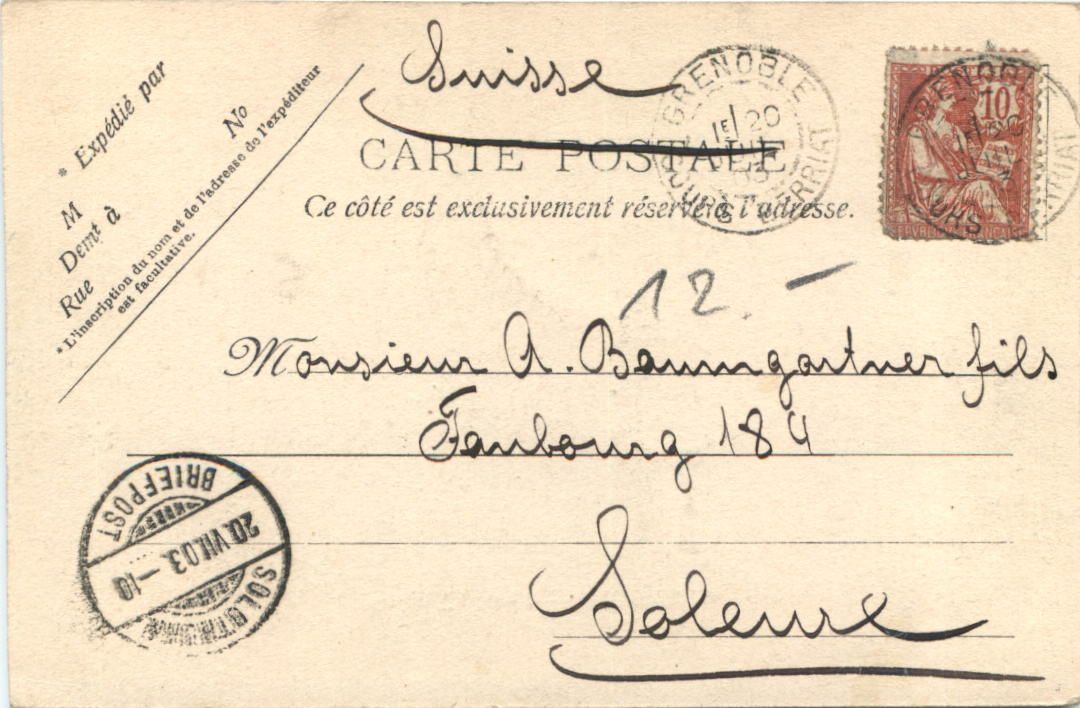 Suisse
CARTE POSTALE
Ce côté est exclusivement réservé à l'adresse.
* Expédié par
No
M
Demt à
Rue
* L'inscription du nom et de l'adresse de l'expéditeur
est facultative.
GRENOBLE
1E 20
10
GRENOBLE
12.-
Monsieur A. Baumgartner fils
Faubourg 184
Soleure
BRIEFPOST
20.VII.03.-10